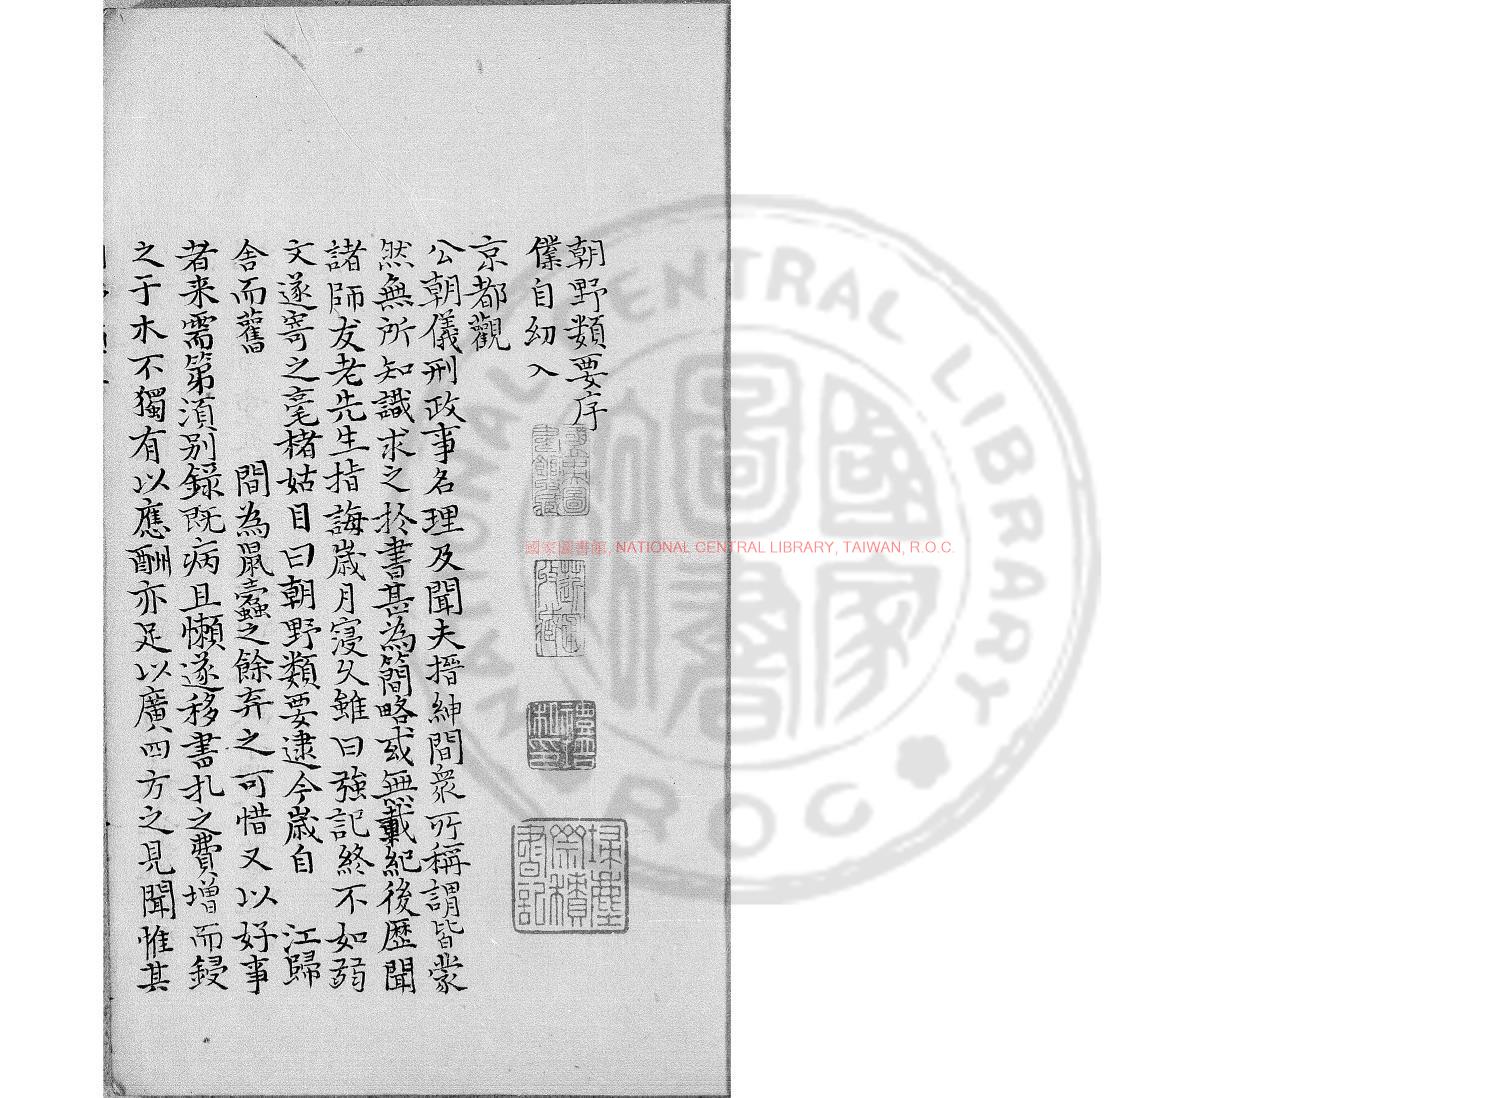 朝野類要序
僕自幼入
京都觀
公朝儀刑政事名理及聞夫搢紳間衆所稱謂皆蒙
然無所知識求之於書甚為簡略或無載紀後歷聞
諸師友老先生指誨歲月寖久雖曰強記終不如弱
文遂寄之毫楮姑目曰朝野類要逮今歲自 江歸
舍而舊 間為鼠蠹之餘弃之可惜又以好事
者来需第湏别錄既病且懶遂移書扎之費増而鋟
之于木不獨有以應酬亦足以廣四方之見聞惟其
國家圖書館, NATIONAL CENTRAL LIBRARY, TAIWAN, R.O.C.
NATIONAL CENTRAL LIBRARY
ROC
國家圖書